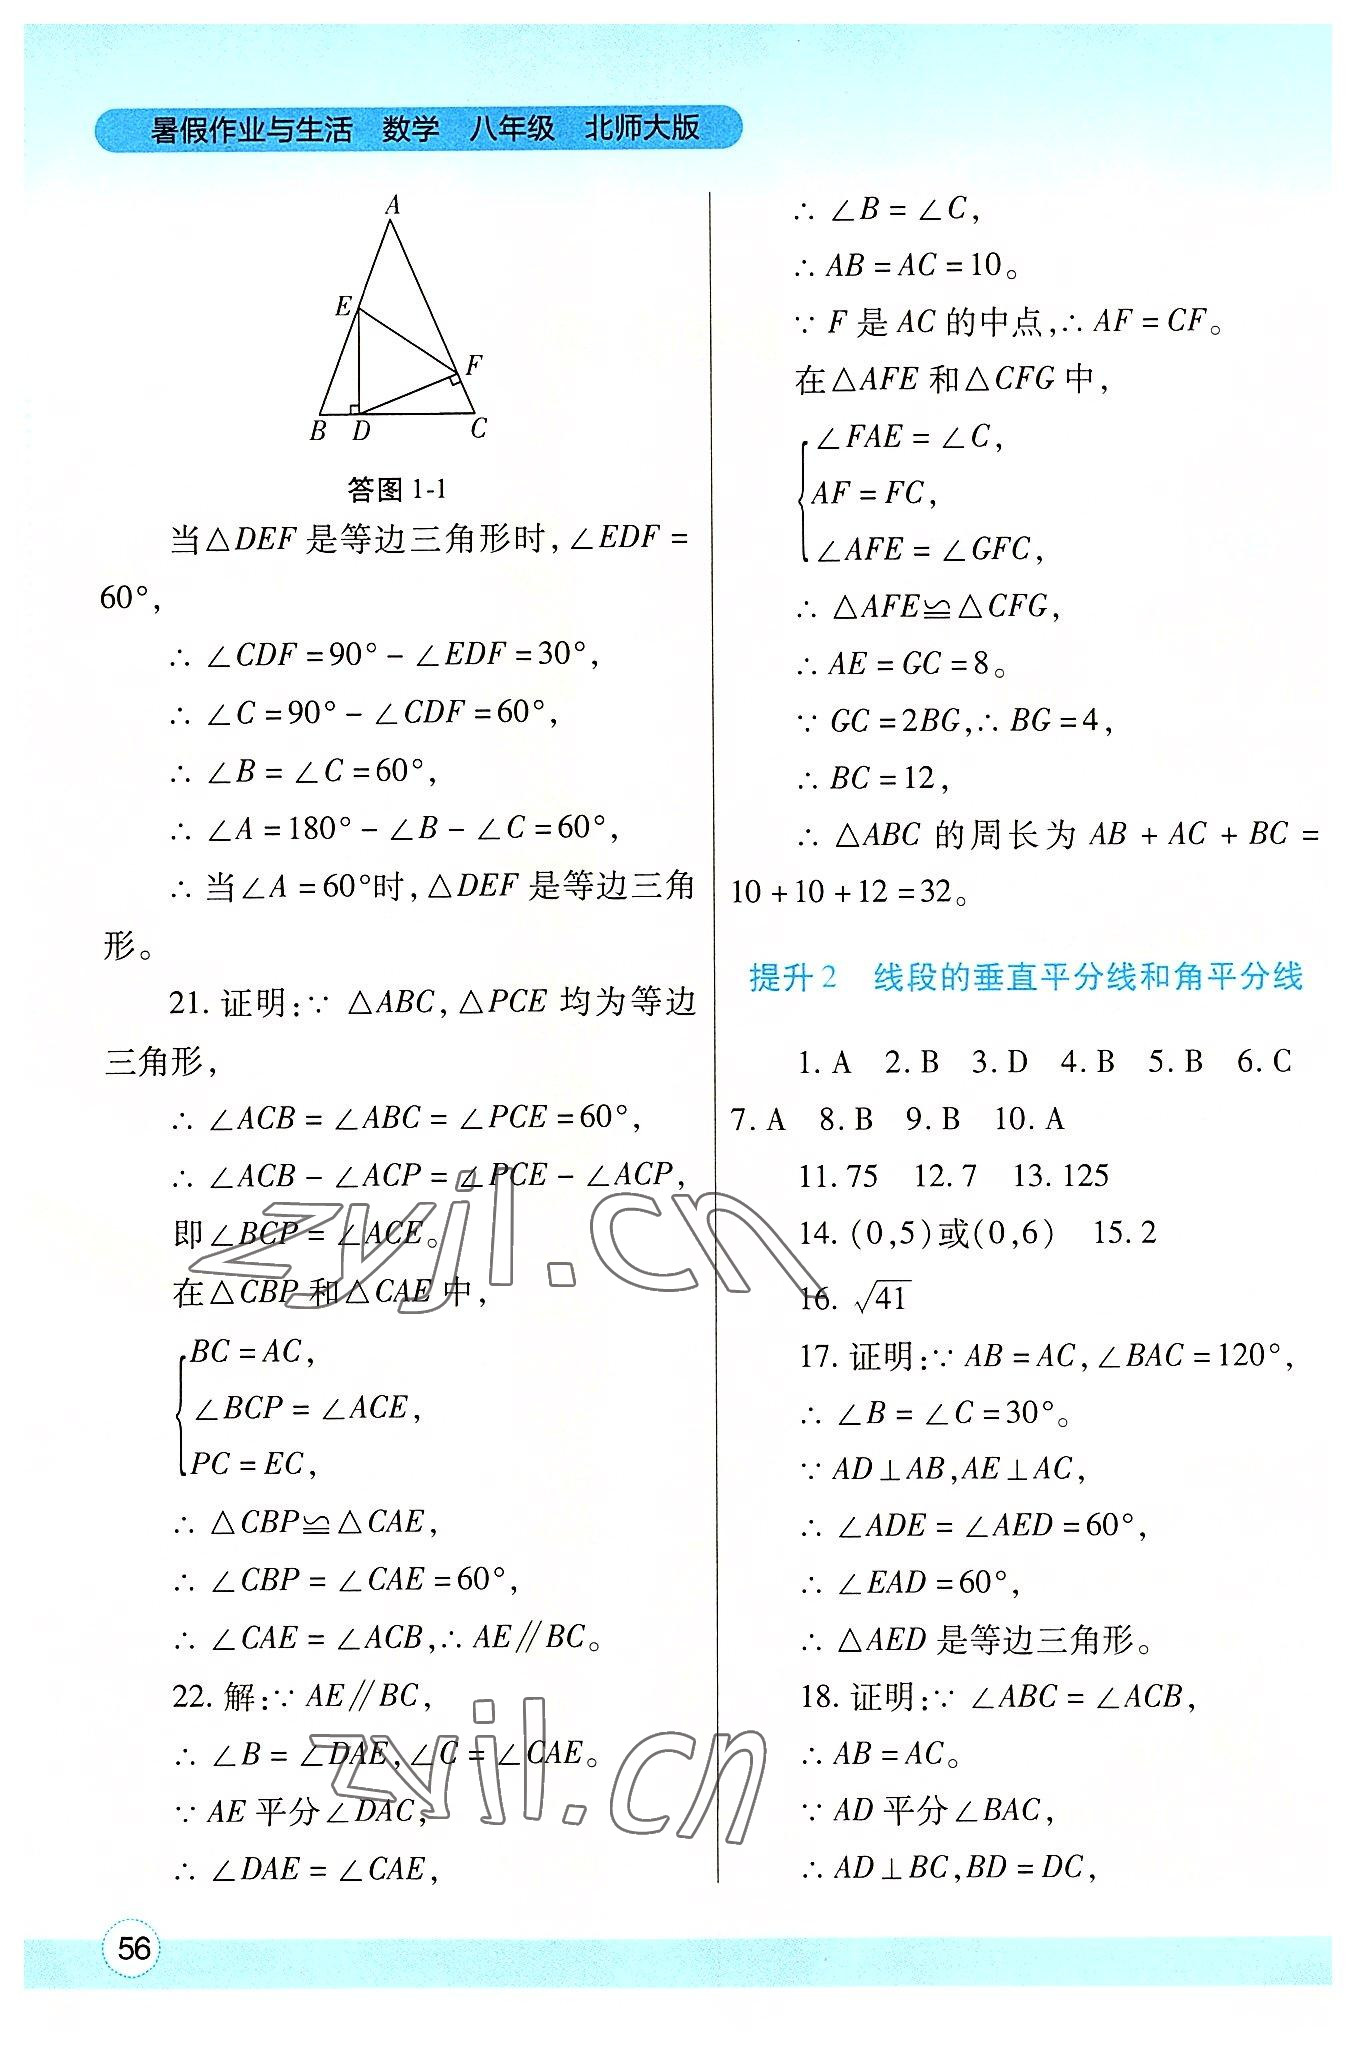 暑假作业与生活 数学 八年级 北师大版
A
E
F
B D C
答图1-1
当△DEF是等边三角形时,∠EDF=
60°,
∴ ∠CDF=90°-∠EDF=30°,
∴ ∠C=90°-∠CDF=60°,
∴ ∠B=∠C=60°,
∴ ∠A=180°-∠B-∠C=60°,
∴ 当∠A=60°时,△DEF是等边三角
形。
21. 证明:∵ △ABC,△PCE均为等边
三角形,
∴ ∠ACB=∠ABC=∠PCE=60°,
∴ ∠ACB-∠ACP=∠PCE-∠ACP,
即∠BCP=∠ACE。
在△CBP和△CAE中,
BC=AC,
∠BCP=∠ACE,
PC=EC,
∴ △CBP≌△CAE,
∴ ∠CBP=∠CAE=60°,
∴ ∠CAE=∠ACB,∴ AE∥BC。
22. 解:∵ AE∥BC,
∴ ∠B=∠DAE,∠C=∠CAE。
∵ AE平分∠DAC,
∴ ∠DAE=∠CAE,
∴ ∠B=∠C,
∴ AB=AC=10。
∵ F是AC的中点,∴ AF=CF。
在△AFE和△CFG中,
∠FAE=∠C,
AF=FC,
∠AFE=∠GFC,
∴ △AFE≌△CFG,
∴ AE=GC=8。
∵ GC=2BG,∴ BG=4,
∴ BC=12,
∴ △ABC的周长为AB+AC+BC=
10+10+12=32。
提升2 线段的垂直平分线和角平分线
1. A 2. B 3. D 4. B 5. B 6. C
7. A 8. B 9. B 10. A
11. 75 12. 7 13. 125
14. (0,5)或(0,6) 15. 2
16. √41
17. 证明:∵ AB=AC,∠BAC=120°,
∴ ∠B=∠C=30°。
∵ AD⊥AB,AE⊥AC,
∴ ∠ADE=∠AED=60°,
∴ ∠EAD=60°,
∴ △AED是等边三角形。
18. 证明:∵ ∠ABC=∠ACB,
∴ AB=AC。
∵ AD平分∠BAC,
∴ AD⊥BC,BD=DC,
zyjl.cn
zyjl.cn
56